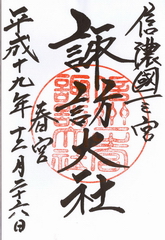 信濃國一之宮
諏訪大社
春宮
平成十九年十二月二十八日